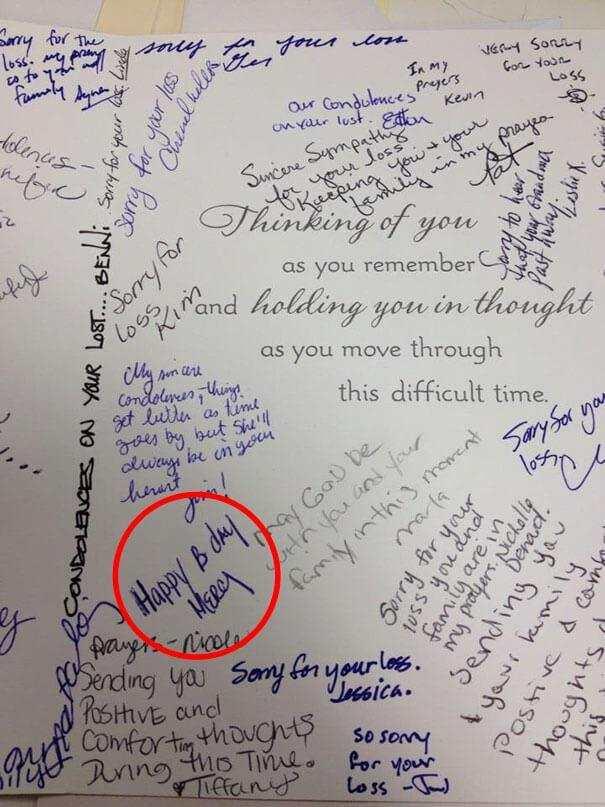 Sorry for the
loss. my prayers
family Agnes
sorry for your loss
VERY SORRY
FOR YOUR
LOSS
In my
Prayers
Kevin
our Condolences
on your lost. Ethan
Sorry for your loss. Linda
Sorry for your loss
Sincere Sympathy
for your loss
Keeping you + your
family in my prayers
Pat
Sorry to hear
that your Grandma
Past away.
Leslie K.
Thinking of you
as you remember
and holding you in thought
as you move through
this difficult time.
Sorry for
loss
Kim
CONDOLENCES ON YOUR LOST.... BENNI
My sincere
condolences, things
get better as time
goes by, but she'll
always be in your
heart
Sorry for you
loss
may God be
with you and your
family in this moment
marla
Happy B day
MERCY
Sorry for your
loss you and
family are in
my prayers. Nicholle
Sending you
& your family
Positive &
thoughts
this
Prayers - Nicole
Sending you
Positive and
Comforting thoughts
During this Time.
Tiffany
Sorry for your loss.
Jessica.
so sorry
for your
Loss